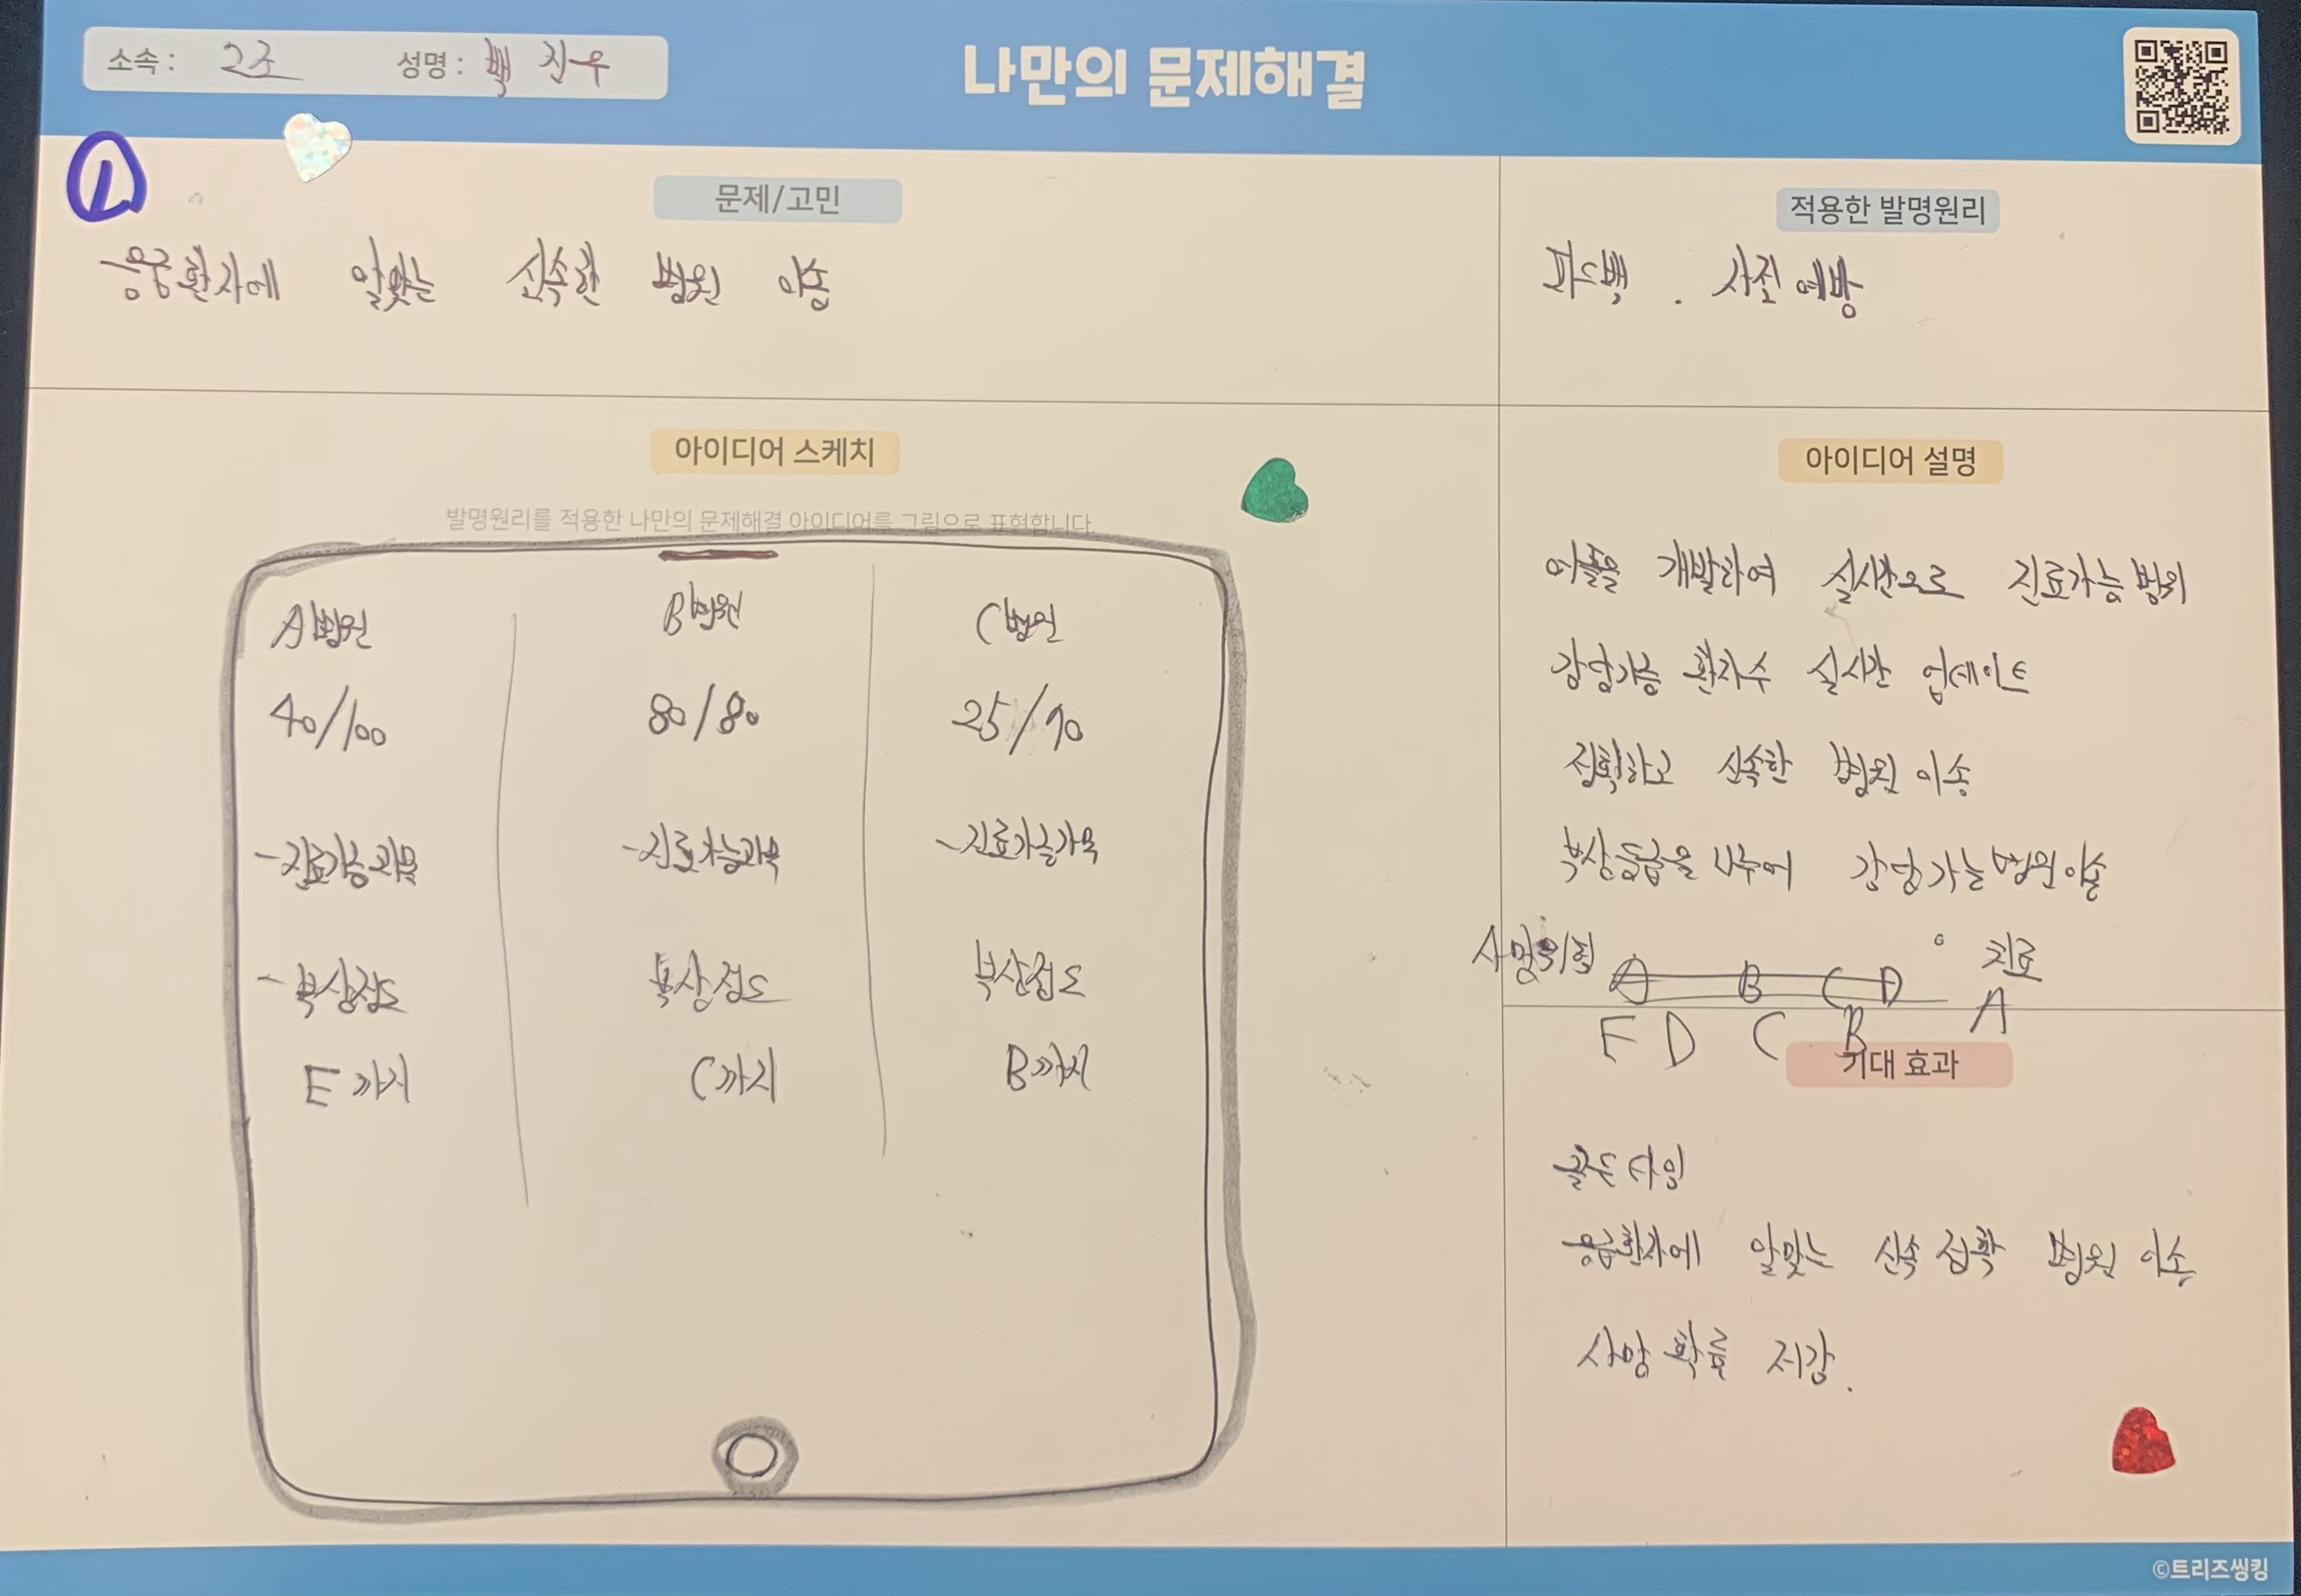 소속 : 2조 성명 : 백진우
나만의 문제해결
1
문제/고민
응급환자에 알맞는 신속한 병원 이송
적용한 발명원리
피드백. 사전예방
아이디어 스케치
발명원리를 적용한 나만의 문제해결 아이디어를 그림으로 표현합니다.
A병원
40/100
-진료가능과목
-부상정도
E까지
B병원
80/80
-진료가능과목
부상정도
C까지
C병원
25/90
-진료가능과목
부상정도
B까지
아이디어 설명
어플을 개발하여 실시간으로 진료가능범위
감당가능 환자수 실시간 업데이트
정확하고 신속한 병원 이송
부상등급을 나누어 감당가능병원이송
사망위험 A B C D 치료
E D C B A
기대 효과
골든타임
응급환자에 알맞는 신속 정확 병원 이송
사망 확률 저감.
©트리즈씽킹